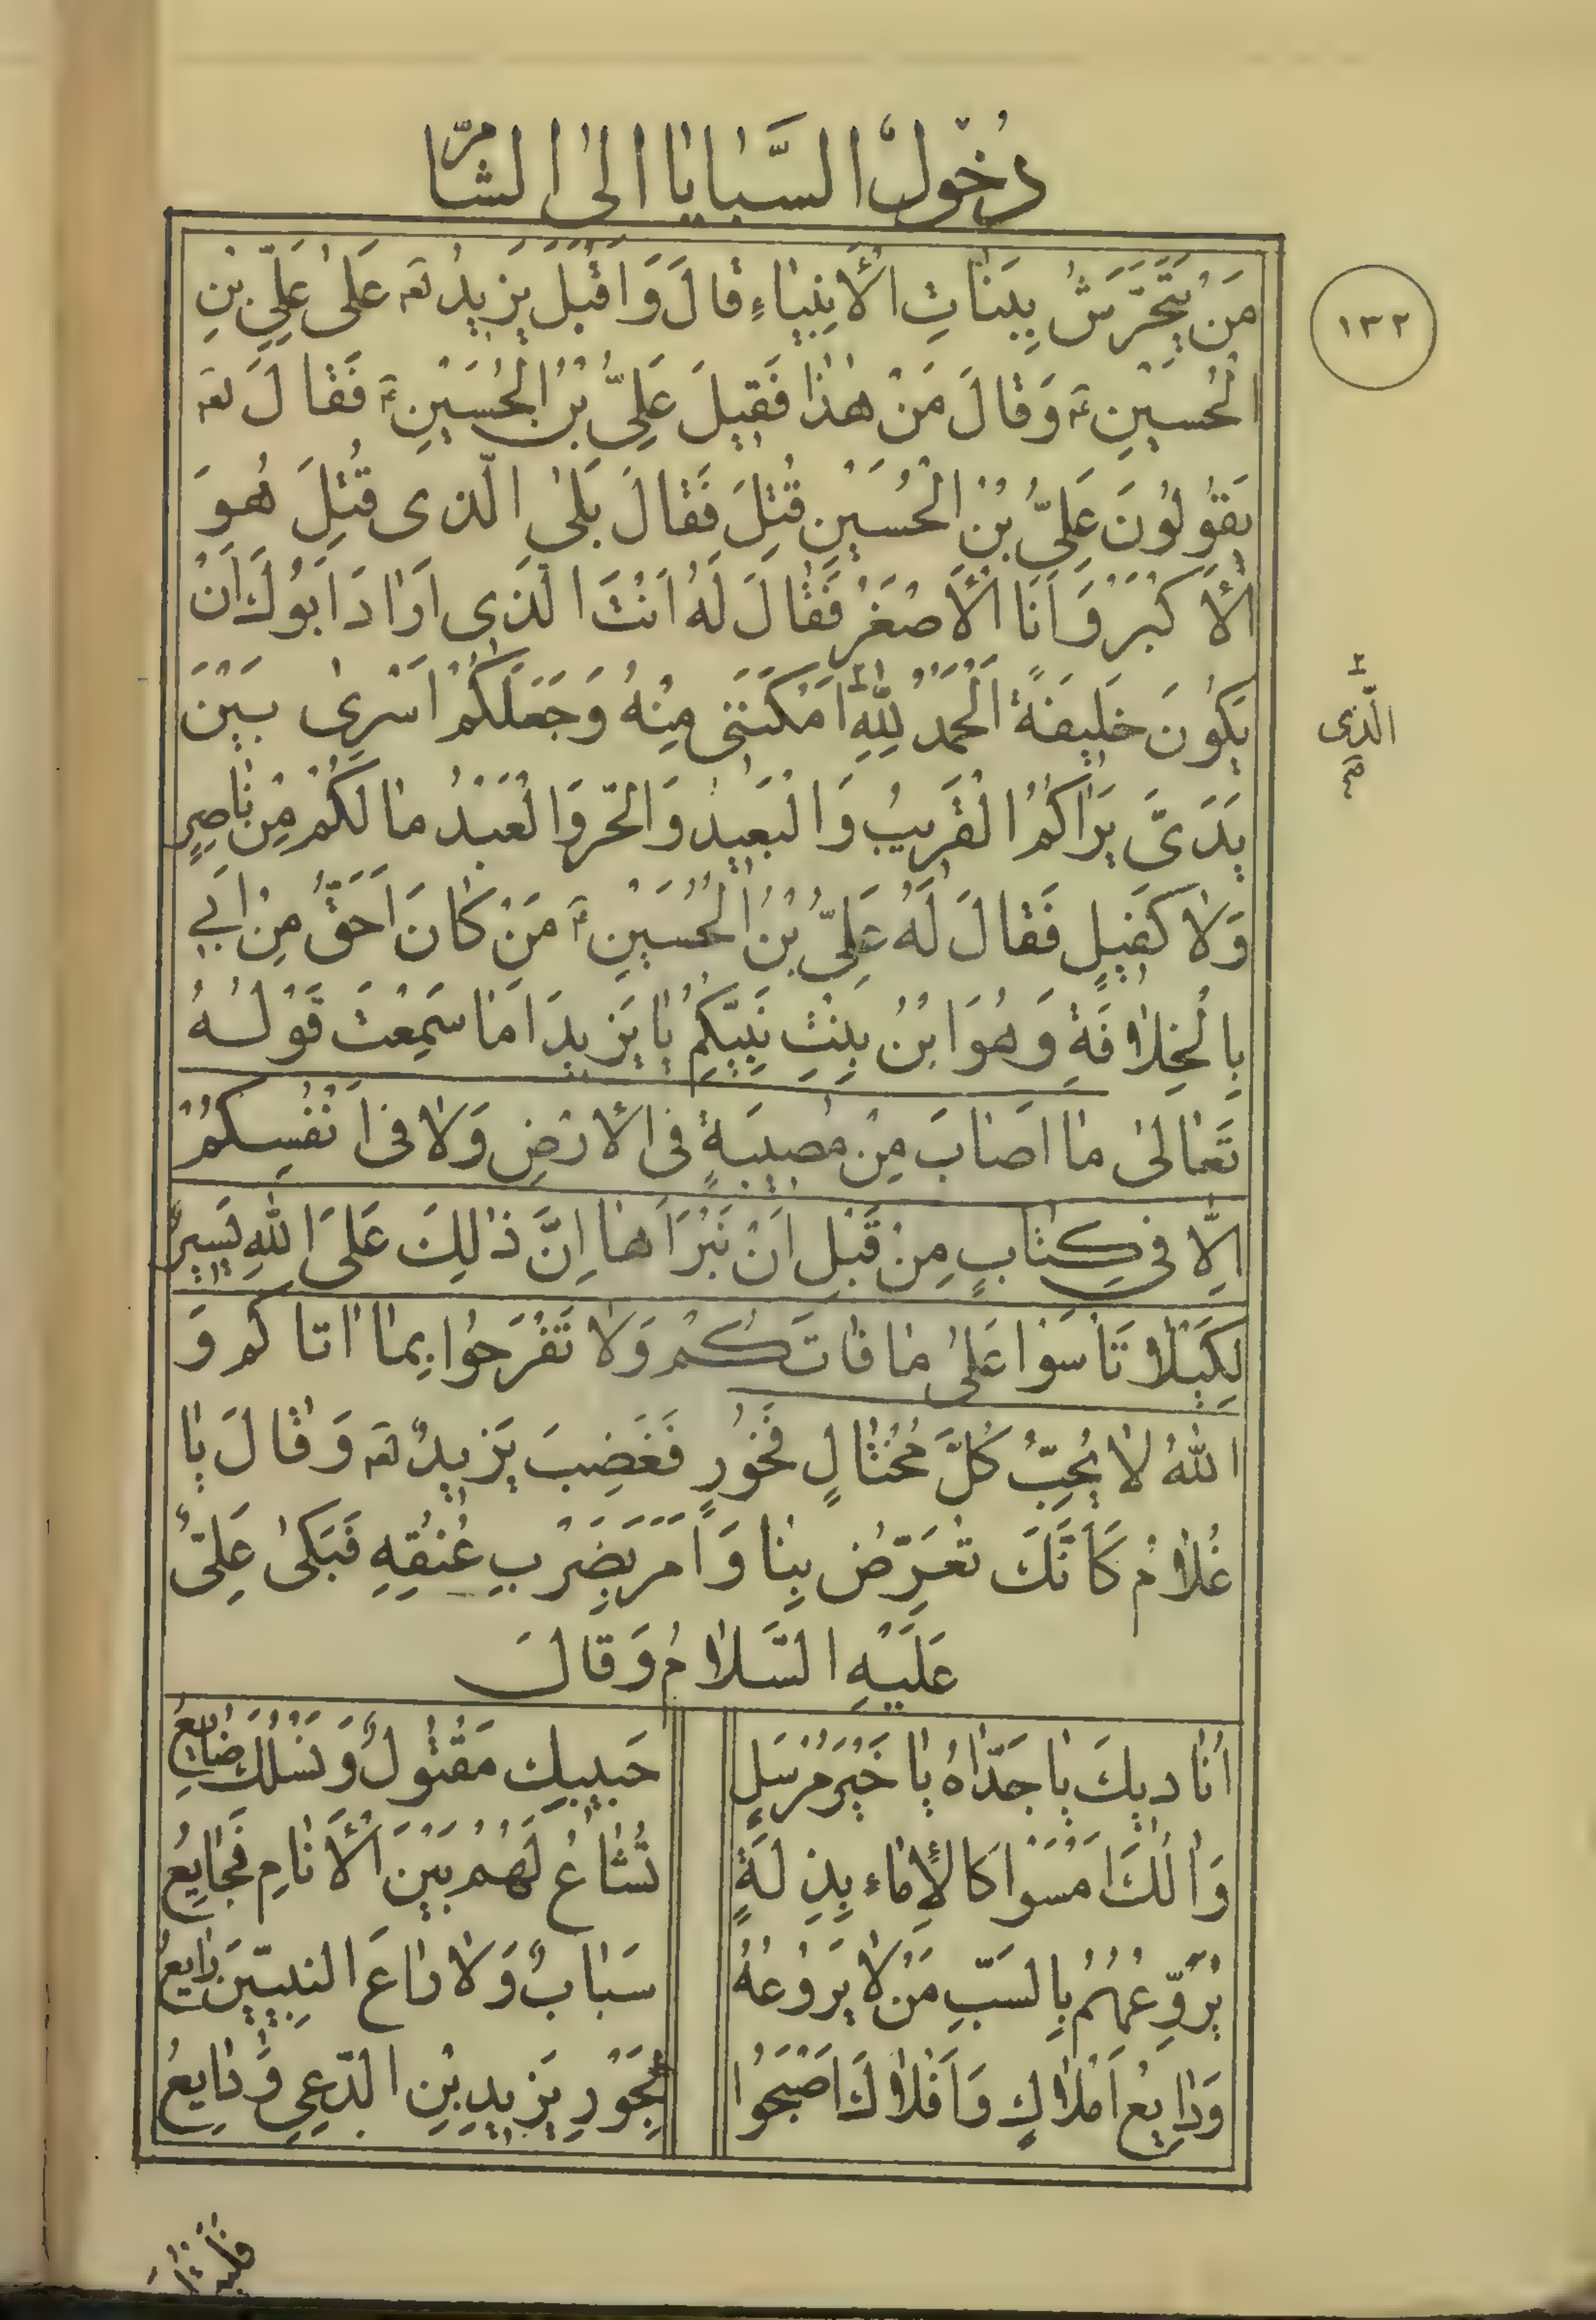 دُخُولُ السَّبٰايٰا اِلىٰ الشّامِ
مَنْ يَتَحَرَّشُ بِبَنٰاتِ الْأَنْبِيٰاءِ قٰالَ وَاَقْبَلَ يَزيدُ لعہ عَلىٰ عَلِيِّ بْنِ
١٣٢
الْحُسَيْنِ ع وَقٰالَ مَنْ هٰذٰا فَقيلَ عَلِيُّ بْنُ الْحُسَيْنِ ع فَقٰالَ لعہ
يَقُولُونَ عَلِيُّ بْنُ الْحُسَيْنِ قُتِلَ فَقٰالَ بَلىٰ الَّذى قُتِلَ هُوَ
الْأَكْبَرُ وَاَنَا الْأَصْغَرُ فَقٰالَ لَهُ اَنْتَ الَّذى اَرٰادَ اَبُوكَ اَنْ
يَكُونَ خَليفَةً اَلْحَمْدُ لِلّٰهِ ٢ اَمْكَنَنى مِنْهُ وَجَعَلَكُمْ اَسْرىٰ بَيْنَ
٢ الَّذى صح
يَدَىَّ يَرٰاكُمُ الْقَريبُ وَالْبَعيدُ وَالْحُرُّ وَالْعَبْدُ مٰا لَكُمْ مِنْ نٰاصِرٍ
وَلٰا كَفيلٍ فَقٰالَ لَهُ عَلِيُّ بْنُ الْحُسَيْنِ ع مَنْ كٰانَ اَحَقُّ مِنْ اَبي
بِالْخِلٰافَةِ وَهُوَ ابْنُ بِنْتِ نَبِيِّكُمْ يٰا يَزيدُ اَمٰا سَمِعْتَ قَوْلَهُ
تَعٰالىٰ مٰا اَصٰابَ مِنْ مُصيبَةٍ فى الْأَرْضِ وَلٰا فى اَنْفُسِكُمْ
اِلّٰا في كِتٰابٍ مِنْ قَبْلِ اَنْ نَبْرَاَهٰا اِنَّ ذٰلِكَ عَلَى اللّٰهِ يَسيرٌ
لِكَيْلٰا تَأْسَوْا عَلىٰ مٰا فٰاتَكُمْ وَلٰا تَفْرَحُوا بِمٰا اٰتاكُم وَ
اللّٰهُ لٰا يُحِبُّ كُلَّ مُخْتٰالٍ فَخُورٍ فَغَضِبَ يَزيدُ لعہ وَقٰالَ يٰا
غُلٰامُ كَاَنَّكَ تُعَرِّضُ بِنٰا وَاَمَرَ بِضَرْبِ عُنُقِهِ فَبَكىٰ عَلِىٌّ
عَلَيْهِ السَّلٰامُ وَقٰالَ
اُنٰاديكَ يٰا جَدّٰاهُ يٰا خَيْرَ مُرْسَلٍ حَبيبُكَ مَقْتُولٌ وَنَسْلُكَ ضٰايِعُ
وَاٰلُكَ اَمْسَوْا كَالْإِمٰاءِ بِذِلَةٍ تُشٰاعُ لَهُمْ بَيْنَ الْأَنٰامِ فَجٰايِعُ
يُرَوِّعُهُمْ بِالسَّبِّ مَنْ لٰا يَرُوعُهُ سَبٰابٌ وَلٰا رٰاعَ النَّبِيّينَ رٰايِعُ
وَدٰايِعُ اَمْلٰاكٍ وَاَفْلٰاكَ اَصْبَحُوا لِجَوْرِ يَزيدِ بْنِ الدَّعِي وَدٰايِعُ